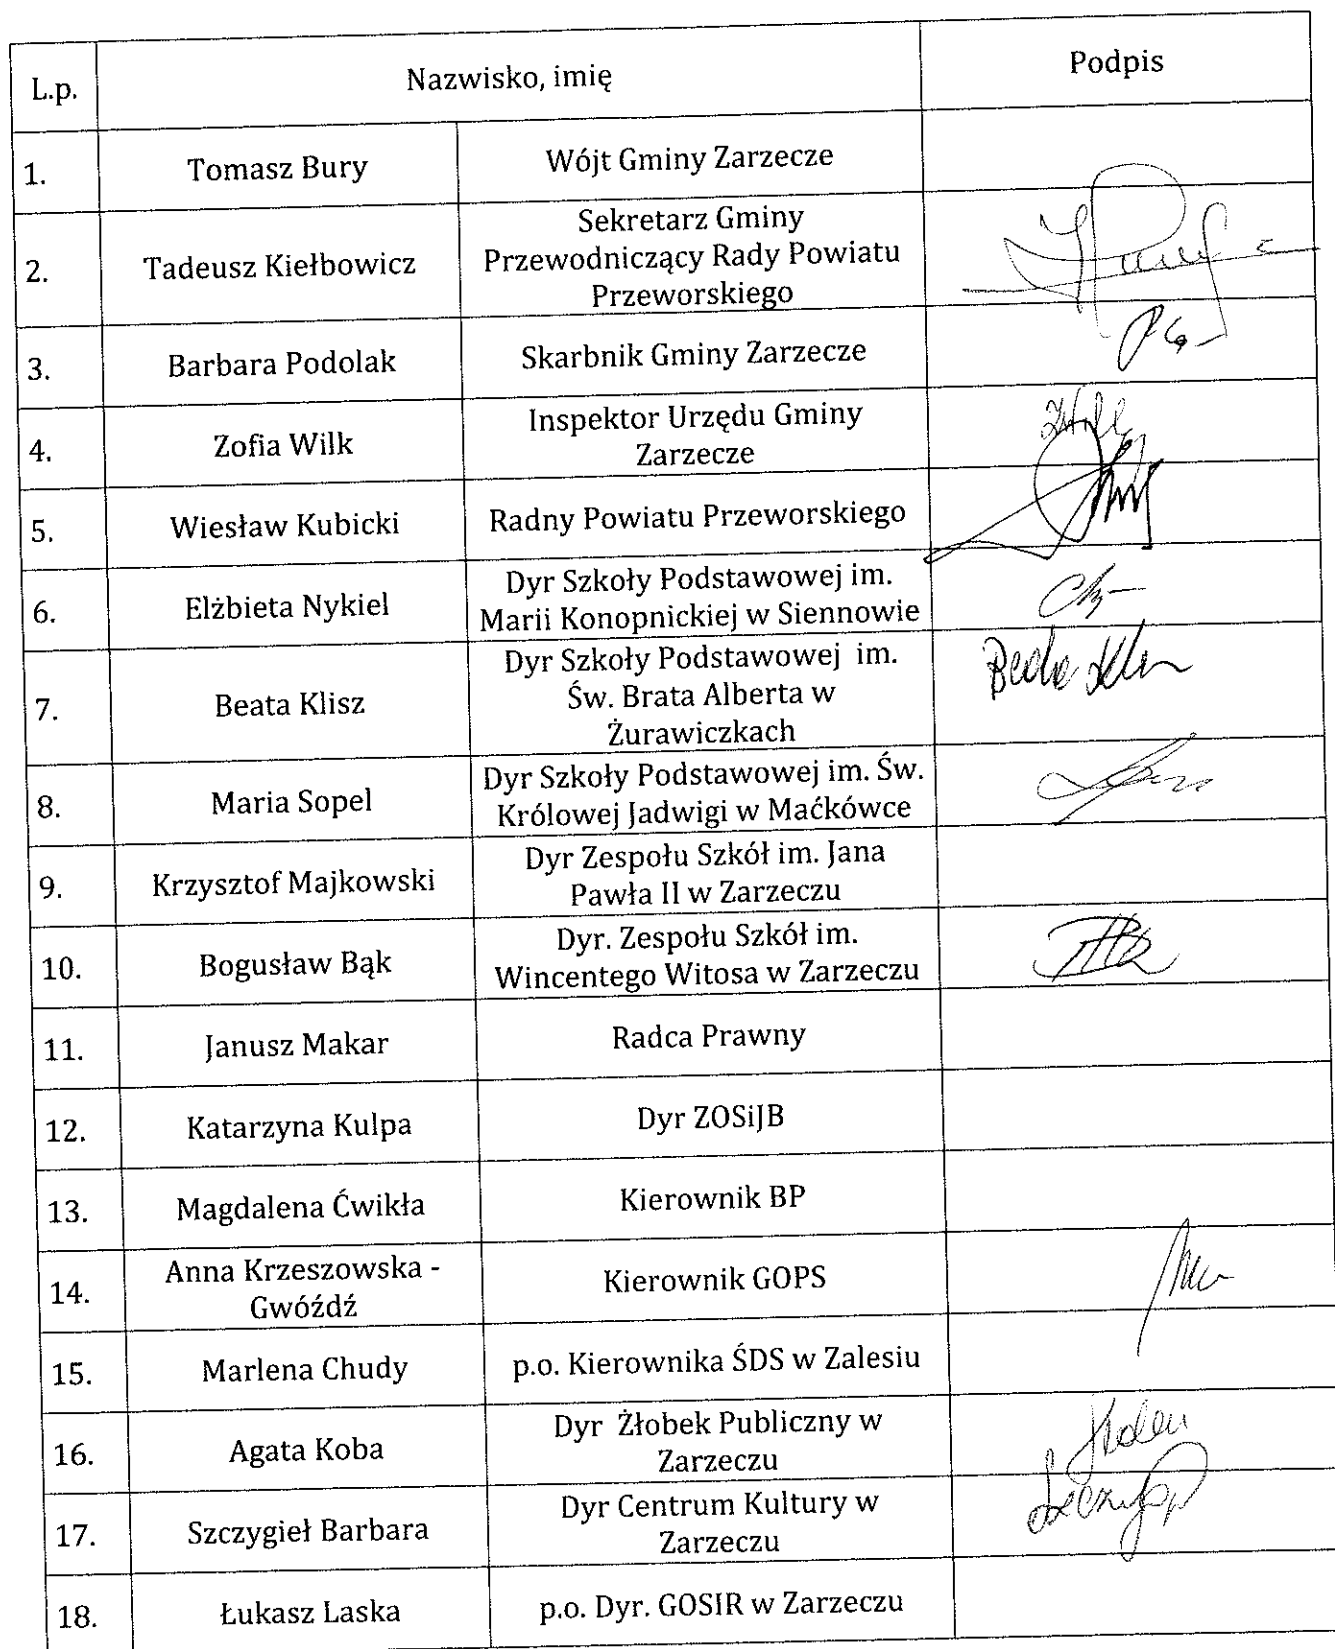 L.p. Nazwisko, imię Podpis
1. Tomasz Bury Wójt Gminy Zarzecze
Sekretarz Gminy
2. Tadeusz Kiełbowicz Przewodniczący Rady Powiatu
Przeworskiego
3. Barbara Podolak Skarbnik Gminy Zarzecze
4. Zofia Wilk Inspektor Urzędu Gminy
Zarzecze
5. Wiesław Kubicki Radny Powiatu Przeworskiego
6. Elżbieta Nykiel Dyr Szkoły Podstawowej im.
Marii Konopnickiej w Siennowie
Dyr Szkoły Podstawowej im.
7. Beata Klisz Św. Brata Alberta w
Żurawiczkach
8. Maria Sopel Dyr Szkoły Podstawowej im. Św.
Królowej Jadwigi w Maćkówce
9. Krzysztof Majkowski Dyr Zespołu Szkół im. Jana
Pawła II w Zarzeczu
10. Bogusław Bąk Dyr. Zespołu Szkół im.
Wincentego Witosa w Zarzeczu
11. Janusz Makar Radca Prawny
12. Katarzyna Kulpa Dyr ZOSiJB
13. Magdalena Ćwikła Kierownik BP
14. Anna Krzeszowska - Kierownik GOPS
Gwóźdź
15. Marlena Chudy p.o. Kierownika ŚDS w Zalesiu
16. Agata Koba Dyr Żłobek Publiczny w
Zarzeczu
17. Szczygieł Barbara Dyr Centrum Kultury w
Zarzeczu
18. Łukasz Laska p.o. Dyr. GOSIR w Zarzeczu